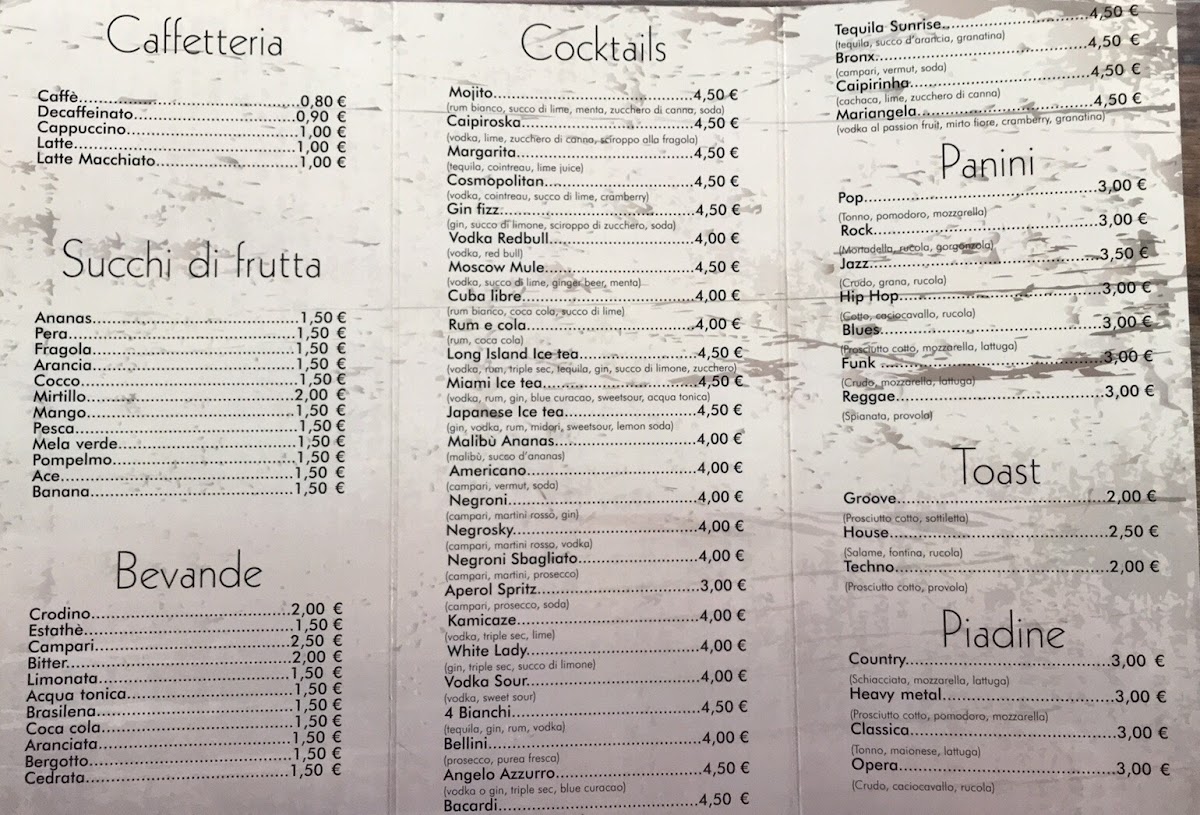 Caffetteria
Caffè 0,80 €
Decaffeinato 0,90 €
Cappuccino 1,00 €
Latte 1,00 €
Latte Macchiato 1,00 €
Succhi di frutta
Ananas 1,50 €
Pera 1,50 €
Fragola 1,50 €
Arancia 1,50 €
Cocco 1,50 €
Mirtillo 2,00 €
Mango 1,50 €
Pesca 1,50 €
Mela verde 1,50 €
Pompelmo 1,50 €
Ace 1,50 €
Banana 1,50 €
Bevande
Crodino 2,00 €
Estathè 1,50 €
Campari 2,50 €
Bitter 2,00 €
Limonata 1,50 €
Acqua tonica 1,50 €
Brasilena 1,50 €
Coca cola 1,50 €
Aranciata 1,50 €
Bergotto 1,50 €
Cedrata 1,50 €
Cocktails
Mojito 4,50 €
(rum bianco, succo di lime, menta, zucchero di canna, soda)
Caipiroska 4,50 €
(vodka, lime, zucchero di canna, sciroppo alla fragola)
Margarita 4,50 €
(tequila, cointreau, lime juice)
Cosmòpolitan 4,50 €
(vodka, cointreau, succo di lime, cramberry)
Gin fizz 4,50 €
(gin, succo di limone, sciroppo di zucchero, soda)
Vodka Redbull 4,00 €
(vodka, red bull)
Moscow Mule 4,50 €
(vodka, succo di lime, ginger beer, menta)
Cuba libre 4,00 €
(rum bianco, coca cola, succo di lime)
Rum e cola 4,00 €
(rum, coca cola)
Long Island Ice tea 4,50 €
(vodka, rum, triple sec, tequila, gin, succo di limone, zucchero)
Miami Ice tea 4,50 €
(vodka, rum, gin, blue curacao, sweetsour, acqua tonica)
Japanese Ice tea 4,50 €
(gin, vodka, rum, midori, sweetsour, lemon soda)
Malibù Ananas 4,00 €
(malibù, succo d'ananas)
Americano 4,00 €
(campari, vermut, soda)
Negroni 4,00 €
(campari, martini rosso, gin)
Negrosky 4,00 €
(campari, martini rosso, vodka)
Negroni Sbagliato 4,00 €
(campari, martini, prosecco)
Aperol Spritz 3,00 €
(campari, prosecco, soda)
Kamicaze 4,00 €
(vodka, triple sec, lime)
White Lady 4,00 €
(gin, triple sec, succo di limone)
Vodka Sour 4,00 €
(vodka, sweet sour)
4 Bianchi 4,50 €
(tequila, gin, rum, vodka)
Bellini 4,00 €
(prosecco, purea fresca)
Angelo Azzurro 4,50 €
(vodka o gin, triple sec, blue curacao)
Bacardi 4,50 €
Tequila Sunrise 4,50 €
(tequila, succo d'arancia, granatina)
Bronx 4,50 €
(campari, vermut, soda)
Caipirinha 4,50 €
(cachaca, lime, zucchero di canna)
Mariangela 4,50 €
(vodka al passion fruit, mirto fiore, cramberry, granatina)
Panini
Pop 3,00 €
(Tonno, pomodoro, mozzarella)
Rock 3,00 €
(Mortadella, rucola, gorgonzola)
Jazz 3,50 €
(Crudo, grana, rucola)
Hip Hop 3,00 €
(Cotto, caciocavallo, rucola)
Blues 3,00 €
(Prosciutto cotto, mozzarella, lattuga)
Funk 3,00 €
(Crudo, mozzarella, lattuga)
Reggae 3,00 €
(Spianata, provola)
Toast
Groove 2,00 €
(Prosciutto cotto, sottiletta)
House 2,50 €
(Salame, fontina, rucola)
Techno 2,00 €
(Prosciutto cotto, provola)
Piadine
Country 3,00 €
(Schiacciata, mozzarella, lattuga)
Heavy metal 3,00 €
(Prosciutto cotto, pomodoro, mozzarella)
Classica 3,00 €
(Tonno, maionese, lattuga)
Opera 3,00 €
(Crudo, caciocavallo, rucola)